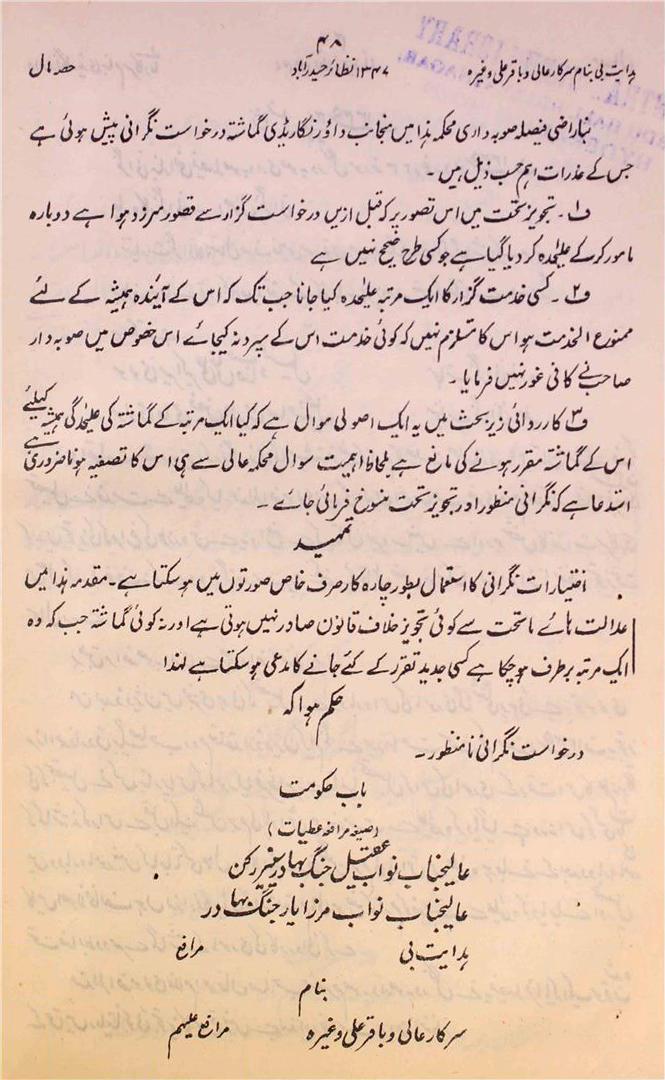 ۴۸
ہدایت بی بنام سرکار عالی و باقر علی وغیرہ ۱۳۴۷ نظائر حیدرآباد حصہ مال
بناراضی فیصلہ صوبہ داری محکمہ ہذا میں منجانب داؤر نگار یڈی گماشتہ درخواست نگرانی پیش ہوئی ہے
جس کے عذرات اہم حسب ذیل ہیں۔
ف۱۔ تجویز تحت میں اس تصور پر کہ قبل ازیں درخواست گزار سے قصور سرزد ہوا ہے دوبارہ
مامور کر کے علیحدہ کر دیا گیا ہے جو کسی طرح صحیح نہیں ہے
ف۲۔ کسی خدمت گزار کا ایک مرتبہ علیحدہ کیا جانا جب تک کہ اس کے آیندہ ہمیشہ کے لئے
ممنوع الخدمت ہو اس کا مستلزم نہیں کہ کوئی خدمت اس کے سپرد نہ کیجائے اس خصوص میں صوبہ دار
صاحب نے کافی غور نہیں فرمایا۔
ف۳ کارروائی زیر بحث میں یہ ایک اصولی سوال ہے کہ کیا ایک مرتبہ کے گماشتہ کی علیحدگی ہمیشہ کیلئے
اس کے گماشتہ مقرر ہونے کی مانع ہے بلحاظ اہمیت سوال محکمہ عالی سے ہی اس کا تصفیہ ہونا ضروری ہے
استدعا ہے کہ نگرانی منظور اور تجویز تحت منسوخ فرمائی جائے۔
تمہید
اختیارات نگرانی کا استعمال بطور چارہ کار صرف خاص صورتوں میں ہو سکتا ہے۔ مقدمہ ہذا میں
عدالت ہائے ماتحت سے کوئی تجویز خلاف قانون صادر نہیں ہوتی ہے اور نہ کوئی گماشتہ جب کہ وہ
ایک مرتبہ برطرف ہو چکا ہے کسی جدید تقرر کے کئے جانے کا مدعی ہو سکتا ہے لہذا
حکم ہوا کہ
درخواست نگرانی نا منظور۔
باب حکومت
(صیغہ مرافعہ عطیات)
عالیجناب نواب عقیل جنگ بہادر سینیر رکن
عالیجناب نواب مرزا یار جنگ بہادر
ہدایت بی مرافع
بنام
سرکار عالی و باقر علی وغیرہ مرافع علیہم